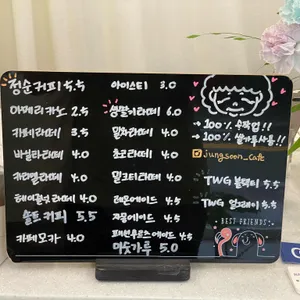 정순커피 5.5
아메리카노 2.5
카페라떼 3.5
바닐라라떼 4.0
카라멜라떼 4.0
헤이즐넛라떼 4.0
솔트커피 5.5
카페모카 4.0
아이스티 3.0
생딸기라떼 6.0
말차라떼 4.0
초코라떼 4.0
밀크티라떼 4.0
레몬에이드 4.5
자몽에이드 4.5
패션후르츠에이드 4.5
미숫가루 5.0
→ 100% 수작업!!
→ 100% 생과일사용!!
jungsoon_cafe
TWG 블랙티 5.5
TWG 얼그레이 5.5
BEST FRIENDS